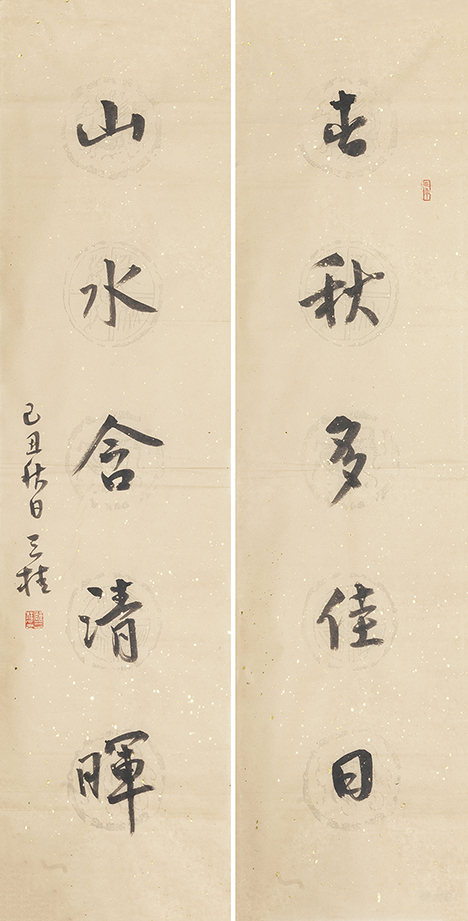 春秋多佳日
山水含清暉
己丑秋日 三桂